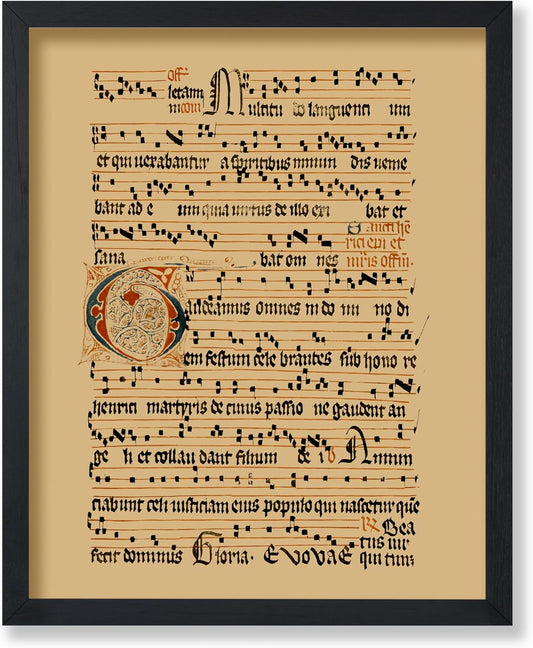 Off̄
letam
m com̄ Multitu do languenti um
et qui uexabantur a spiritibus inmun dis uenie
bant ad e um quia uirtus de illo exi bat et
sana bat om nes Sancti hē
rici epi et
m̄ris offm̄.
Gaudeamus omnes in do mi no di
em festum cele brantes sub hono re
henrici martyris de cuius passio ne gaudent an
ge li et collau dant filium de i v Annun
ciabunt celi iusticiam eius populo qui nascetur quē
fecit dominus Gloria. EVOVAE Rx Bea
tus uir
qui tim;